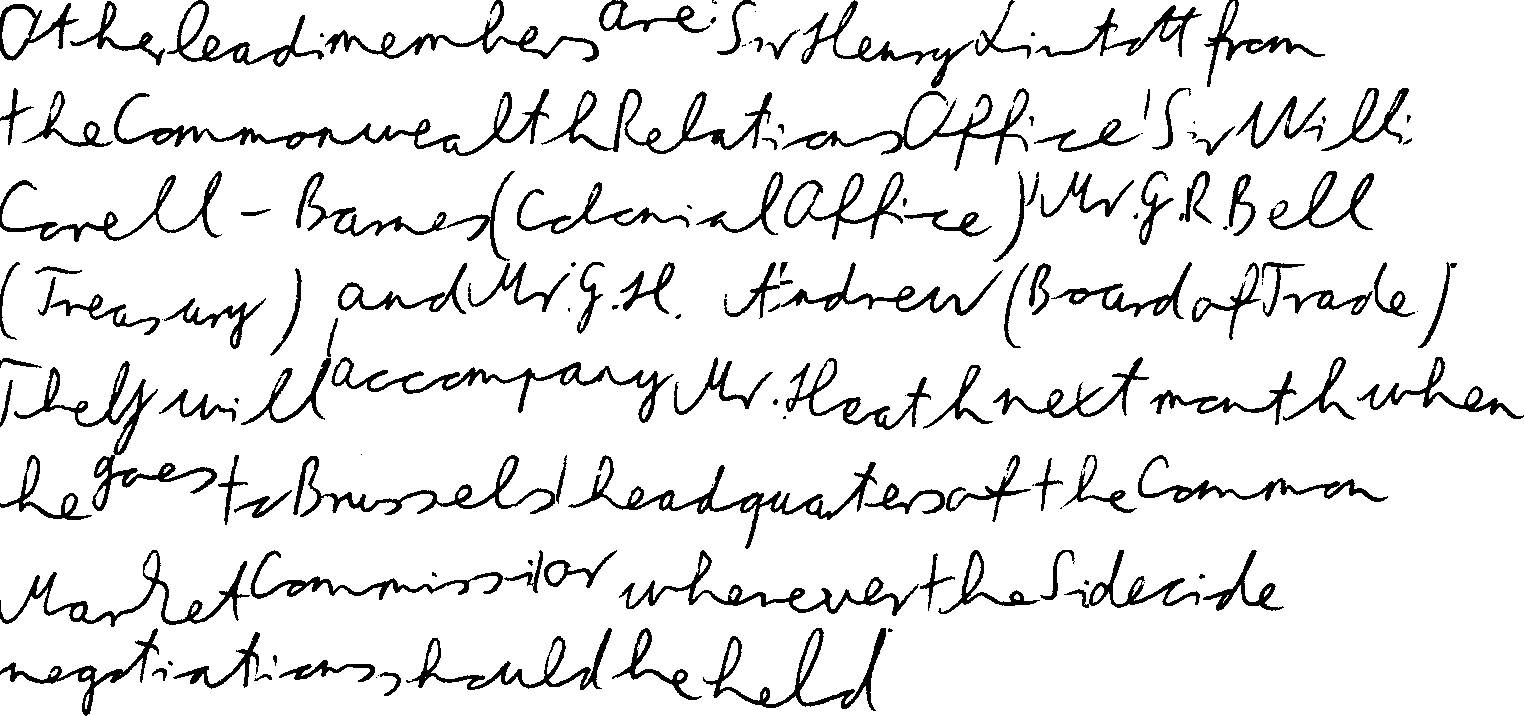 Other lead members are: Sir Henry Lintott from
the Commonwealth Relations Office, Sir Willi
Corell - Barnes (Colonial Office), Mr. G. R. Bell
(Treasury), and Mr. G. H. Andrew (Board of Trade)
They will accompany Mr. Heath next month when
he goes to Brussels, headquarters of the Common
Market Commission wherever the Six decide
negotiations should be held